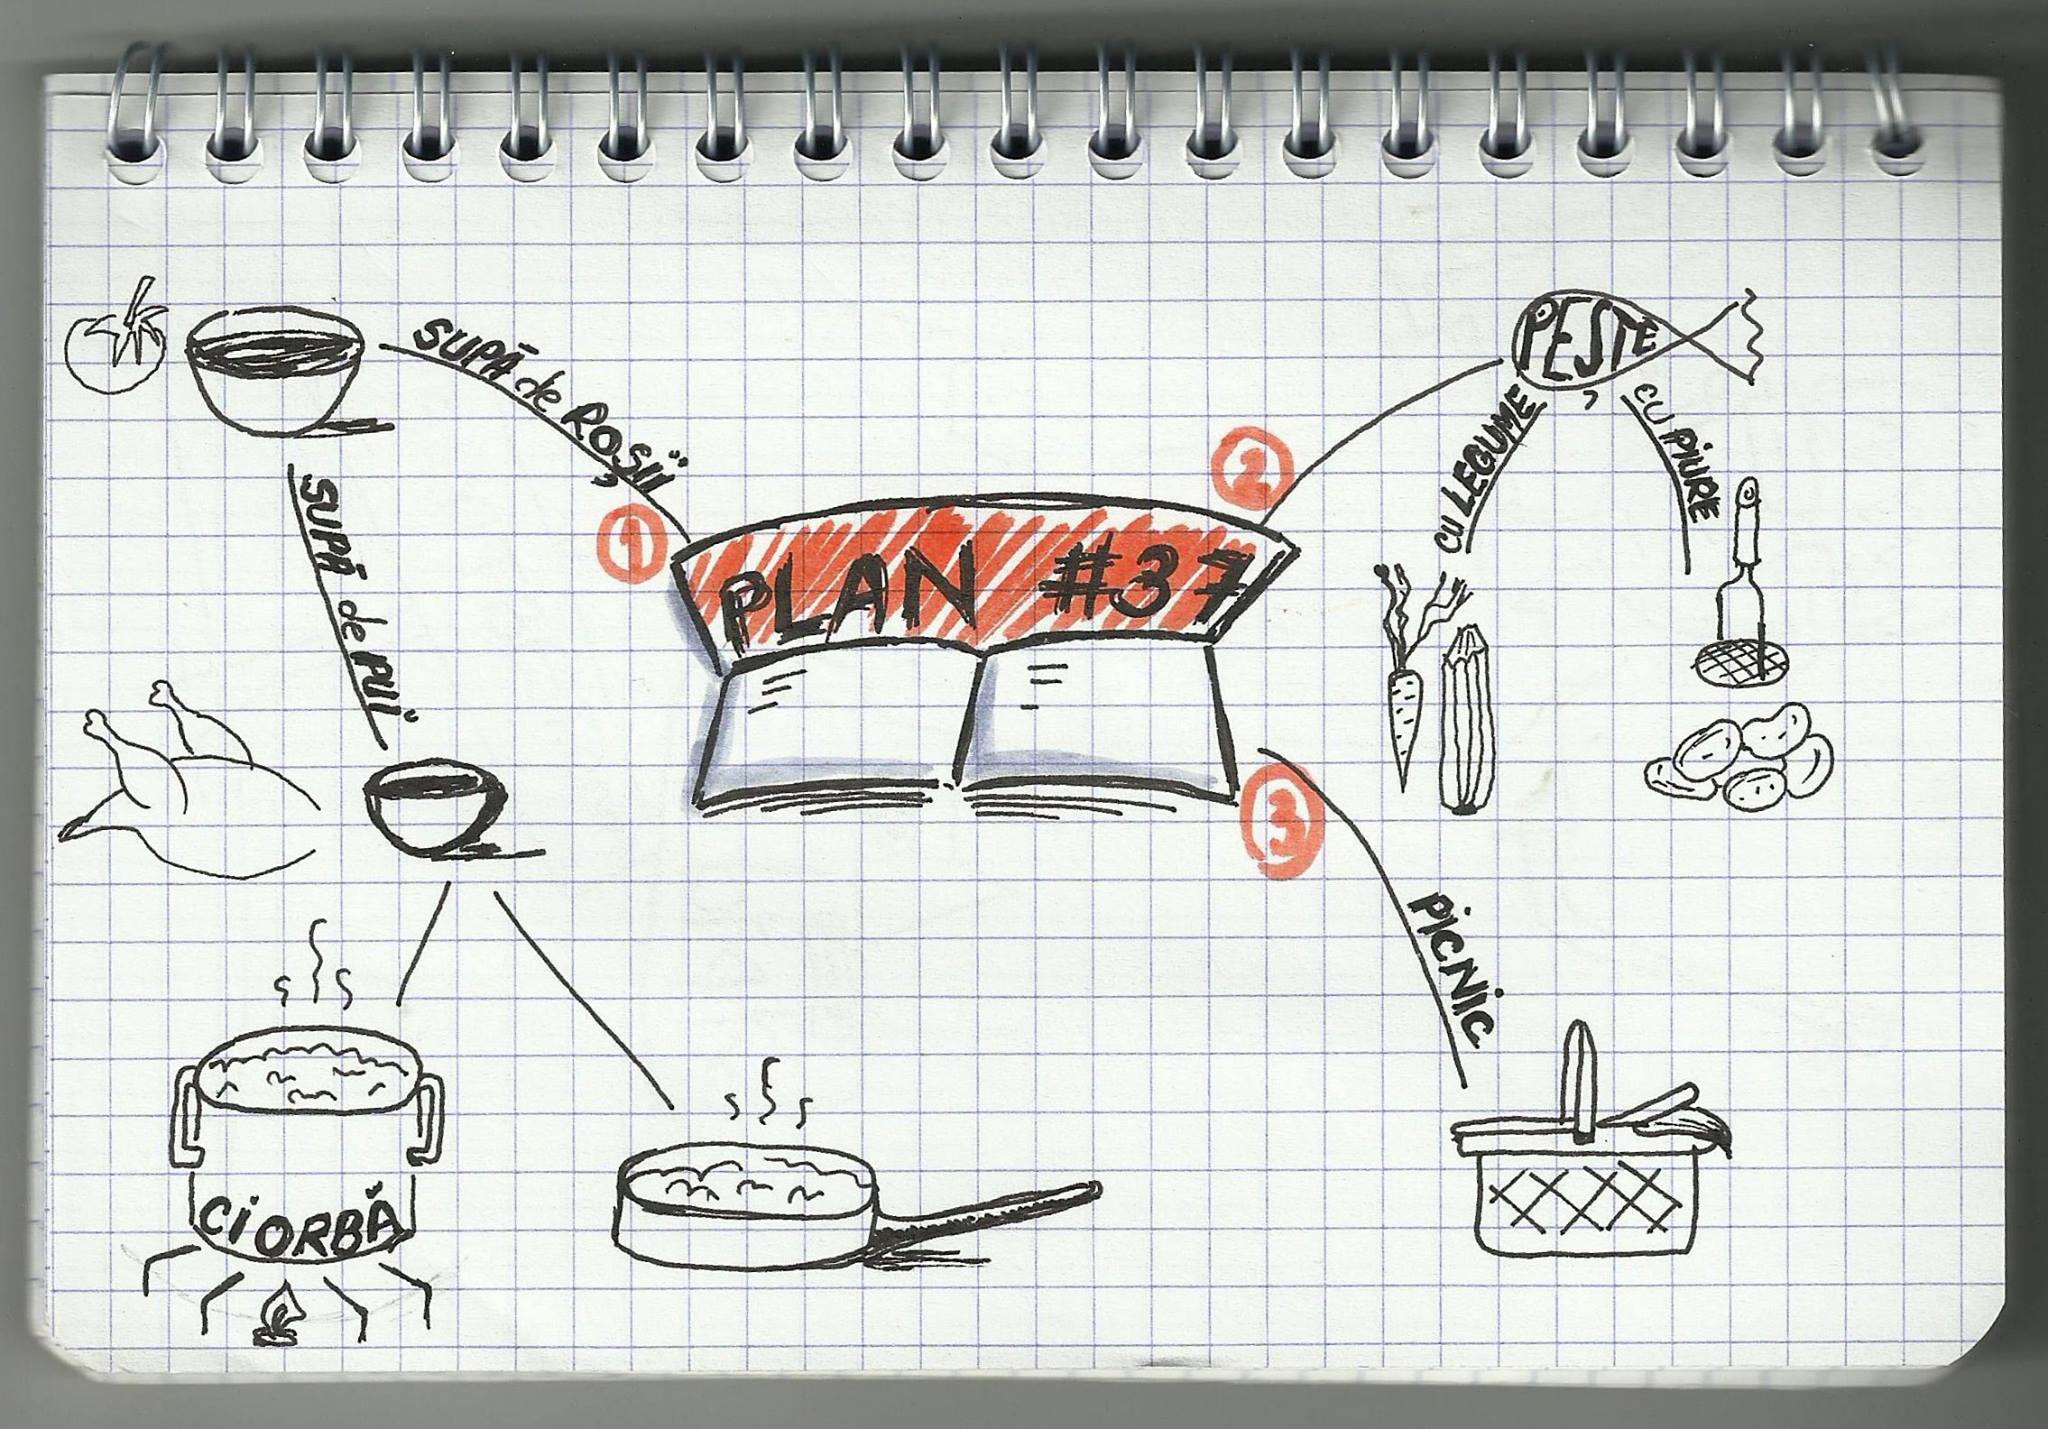 PLAN #37
1
SUPĂ de ROȘII
SUPĂ de PUI
CIORBĂ
2
PEȘTE
CU LEGUME
CU PIURE
3
PICNIC